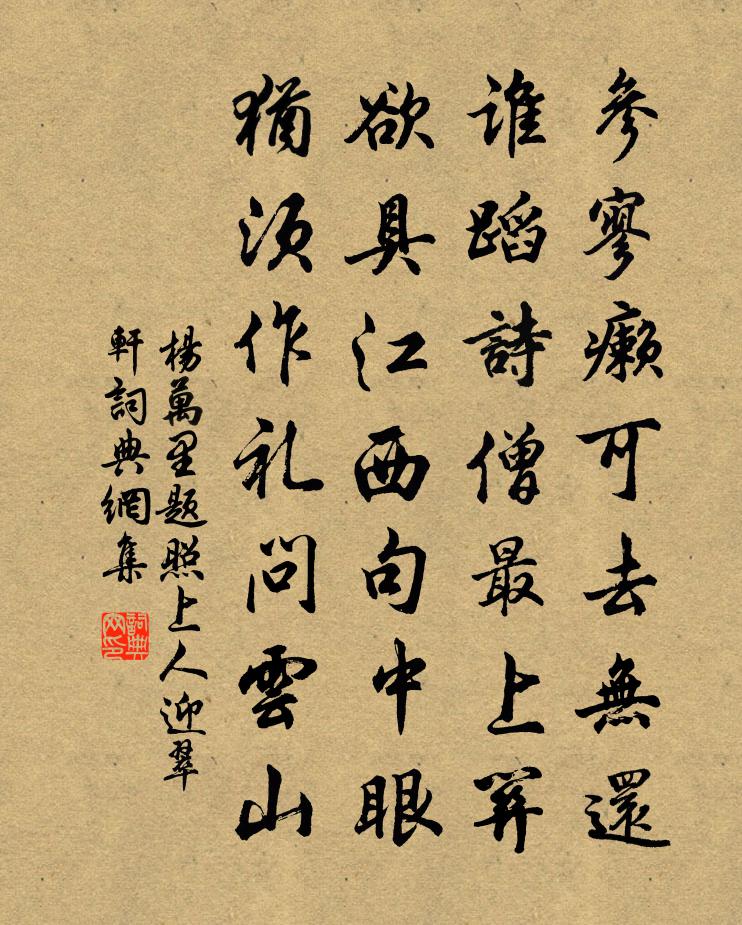 參寥癩可去無還
誰蹈詩僧最上關
欲具江西句中眼
猶須作礼問雲山
楊萬里題照上人迎翠
軒詞典網集
詞典
网印